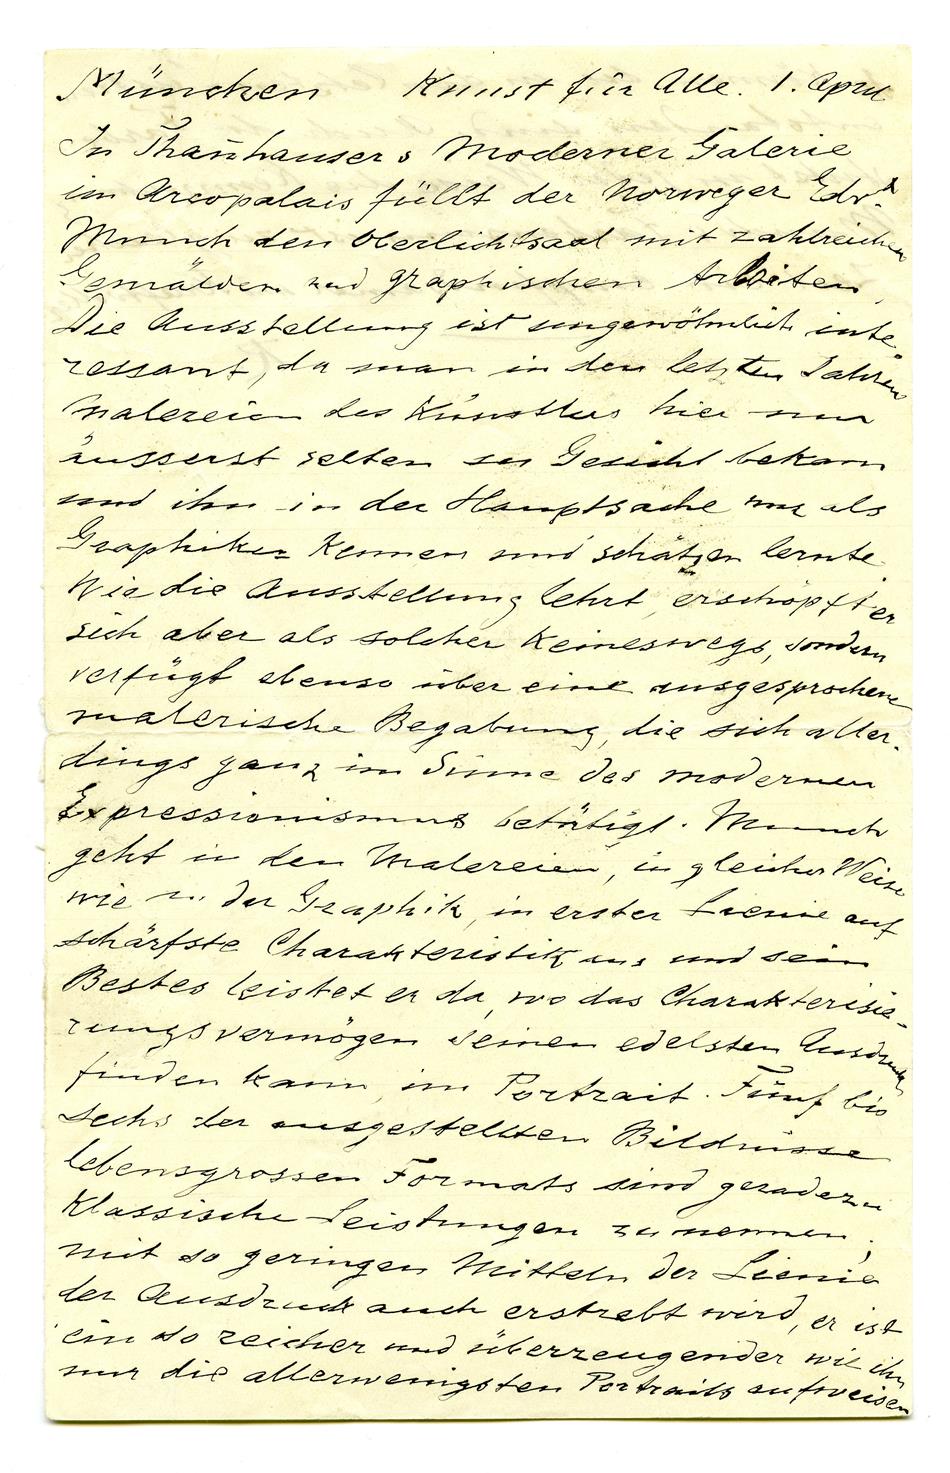 München Kunst für Alle. 1. April
In Thanhausers Moderner Galerie
im Arcopalais füllt der Norweger Edvd
Munch den Oberlichtsaal mit zahlreichen
Gemälden und graphischen Arbeiten,
Die Ausstellung ist ungewöhnlich inte-
ressant, da man in den letzten Jahren
Malereien des Künstlers hier nur
äusserst selten zu Gesicht bekam
und ihn in der Hauptsache nur als
Graphiker kennen und schätzen lernte
Wie die Ausstellung lehrt, erschöpft er
sich aber als solcher keineswegs, sondern
verfügt ebenso über eine ausgesprochene
malerische Begabung, die sich aller-
dings ganz im Sinne des modernen
Expressionismus betätigt. Munch
geht in den Malereien, in gleicher Weise
wie in der Graphik, in erster Lienie auf
schärfste Charakteristik aus und sein
Bestes leistet er da, wo das Charakterisie-
rungsvermögen seinen edelsten Ausdruck
finden kann, im Portrait. Fünf bis
sechs der ausgestellten Bildnisse
lebensgrossen Formats sind geradezu
klassische Leistungen zu nennen;
mit so geringen Mitteln der Lienie
der Ausdruck auch erstrebt wird, er ist
ein so reicher und überzeugender wie ihn
nur die allerwenigsten Portraits aufweisen